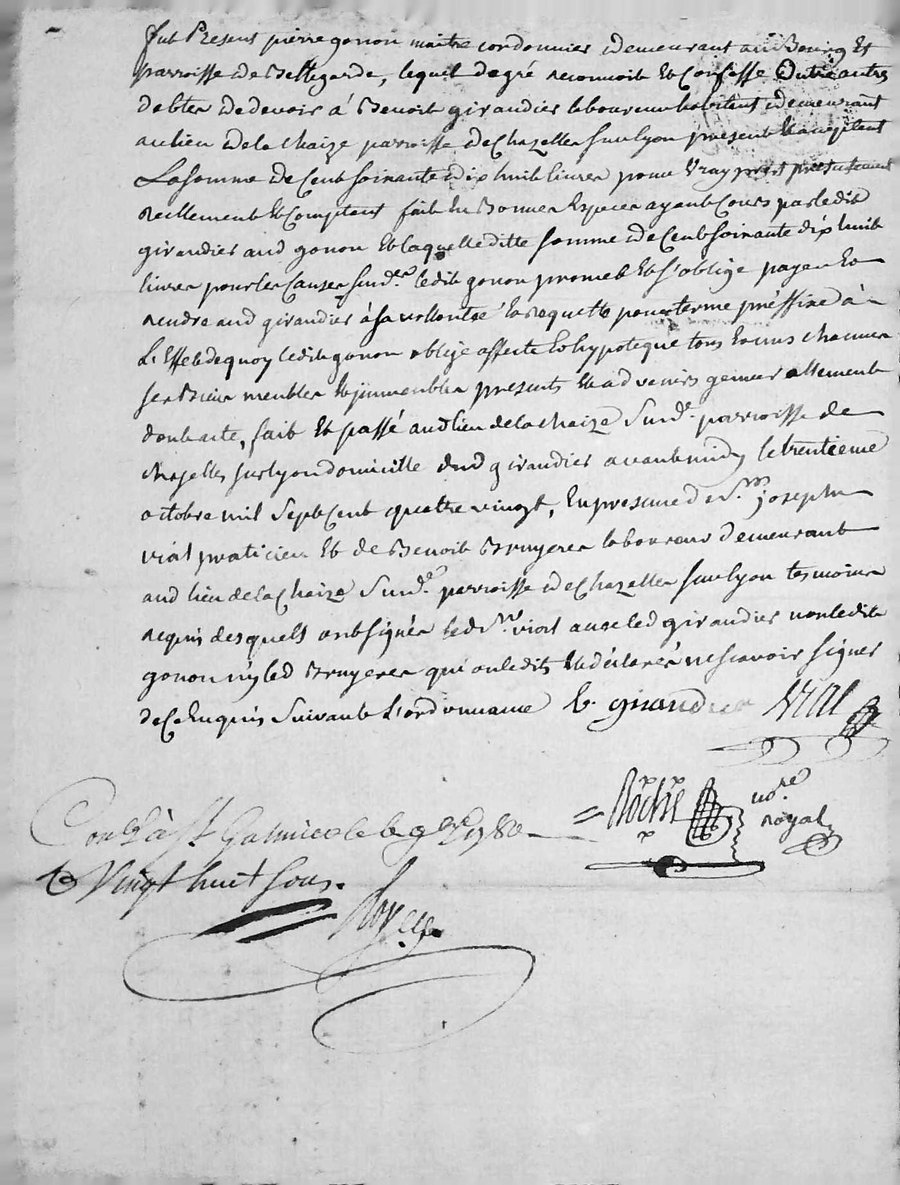 fut Présent pierre gonon maitre cordonnier demeurant au Bourg Et
parroisse de Bellegarde, lequel de gré reconnoit Et Confesse Outre autres
debtes de devoir à Benoit girandier laboureur habitant demeurant
au lieu de la chaize parroisse de Chazelles sur lyon présent Et acceptant
La somme de Cent soixante dix huit livres pour Vray prest présentement
Reellement Et Comptant fait En Bonnes Espèces ayant Cours par ledit
girandier aud gonon Et laquelleditte somme de Cent soixante dix huit
livres pour les Causes susd.es ledit gonon promet Et s'oblige payer Et
rendre aud girandier à sa vollonté Et Requette pour terme préffixe à
L'Effet de quoy ledit gonon oblige affecte Et hypoteque tous Et uns chacuns
ses Biens meubles Et jmmeubles présents Et advenirs generallement
dont acte, fait Et passé aud lieu de la chaize susd.e parroisse de
chazelles sur lyon domicille dud girandier avant midy le trentieme
octobre mil sept Cent quatre vingt, En presence de S.rs joseph
vial praticien Et de Benoit Bruyeres laboureur demeurant
aud lieu de la Chaize Susd.e parroisse de Chazelles sur lyon tesmoins
requis desquels ont signés led s.r vial avec led girandier non ledit
gonon ny led Bruyeres qui ont dit Et déclarés ne scavoir signer
de Ce Enquis suivant L'ordonnance b. girandier Vial
= Roche no.re
royal
Con.lé à S.t Galmier le 9 9.bre 1780
R Vingt huit sous.